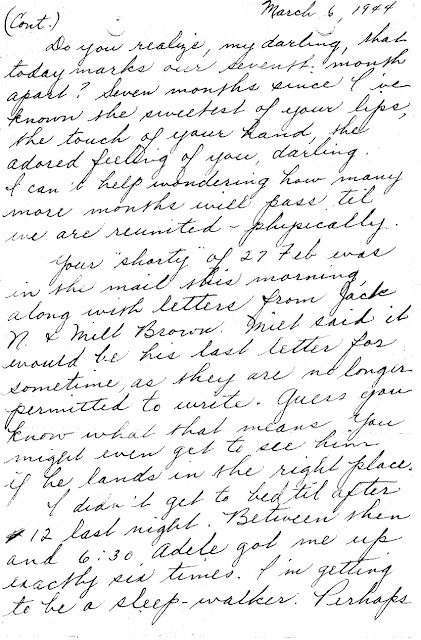 (Cont.)
March 6, 1944
Do you realize, my darling, that
today marks our seventh month
apart? Seven months since I've
known the sweetest of your lips,
the touch of your hand, the
adored feeling of you, darling.
I can't help wondering how many
more months will pass til
we are reunited - physically.
Your "shorty" of 27 Feb was
in the mail this morning,
along with letters from Jack
N. & Milt Brown. Milt said it
would be his last letter for
sometime, as they are no longer
permitted to write. Guess you
know what that means. You
might even get to see him
if he lands in the right place.
I didn't get to bed til after
12 last night. Between then
and 6:30, Adele got me up
exactly six times. I'm getting
to be a sleep-walker. Perhaps